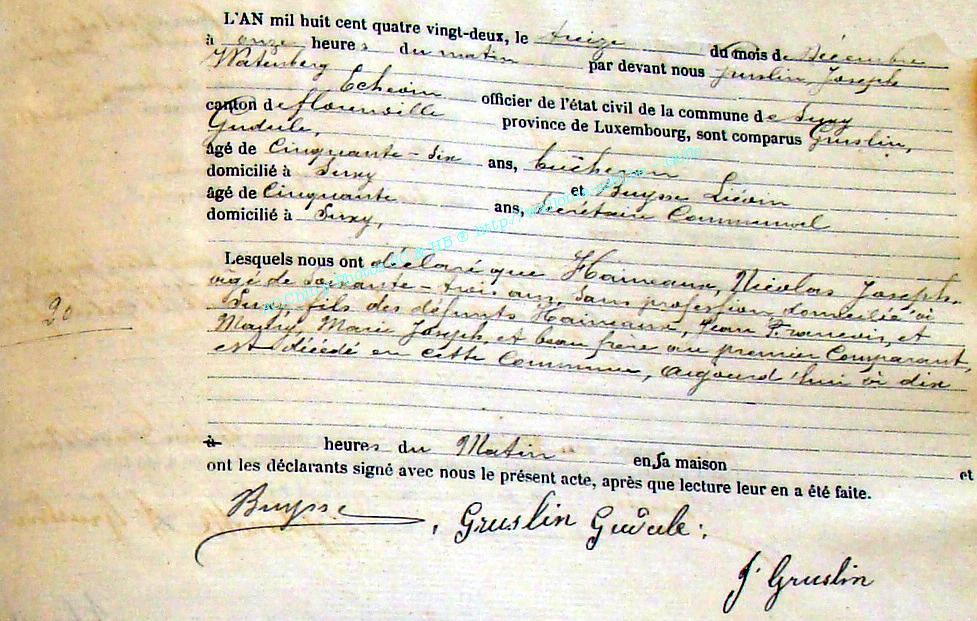 L'AN mil huit cent quatre vingt-deux, le treize du mois de Décembre
à onze heures du matin par devant nous Gruslin Joseph
Watenberg Echevin officier de l'état civil de la commune de Suxy
canton de Florenville province de Luxembourg, sont comparus Gruslin,
Gudule,
âgé de Cinquante-six ans, bûcheron
domicilié à Suxy et Buysse Liévin
âgé de Cinquante ans, Secrétaire Communal
domicilié à Suxy,
Lesquels nous ont déclaré que Haineaux, Nicolas Joseph,
âgé de Soixante-trois anz, Sans profession, domicilié à
Suxy, fils des défunts Haineaux, Jean Francois, et
Marie Joseph, et beau frère au premier Comparant,
est décédé en cette Commune, aujourd'hui à dix
20
à heures du Matin en sa maison et
ont les déclarants signé avec nous le présent acte, après que lecture leur en a été faite.
Buysse, Gruslin Gudule:
J. Gruslin